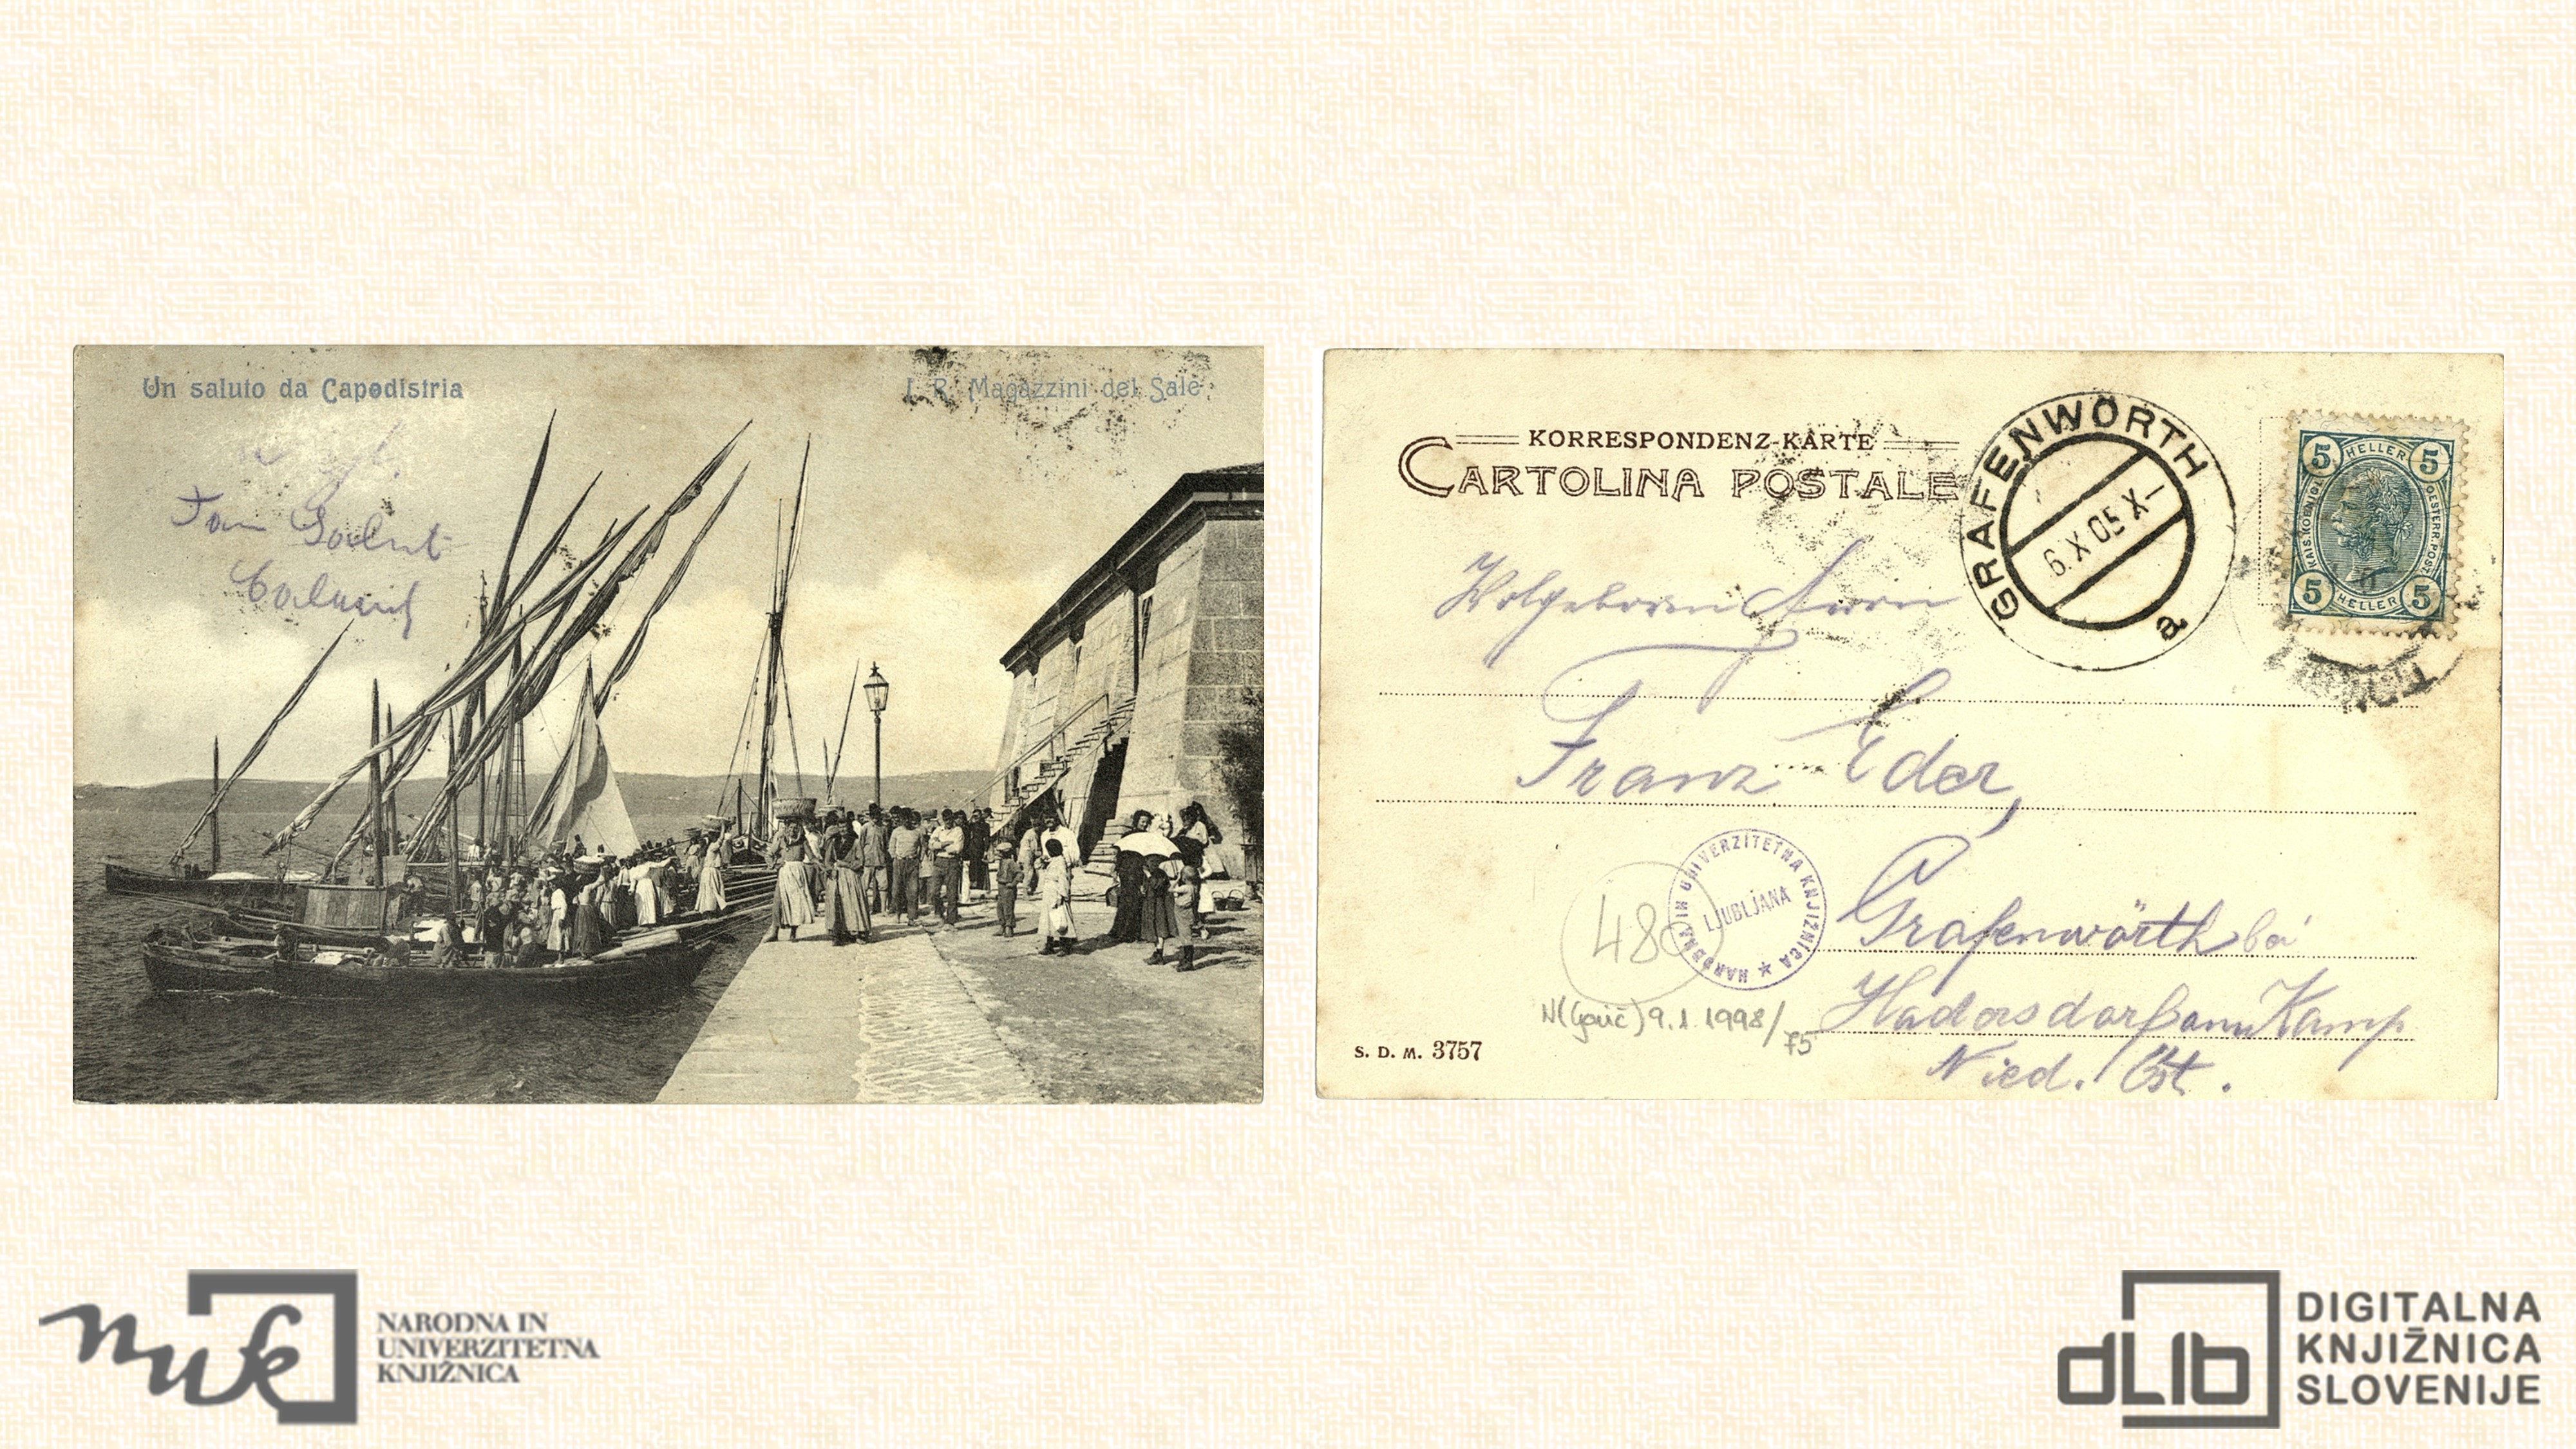 Un saluto da Capodistria
I. R. Magazzini del Sale
KORRESPONDENZ-KARTE
CARTOLINA POSTALE
GRAFENWÖRTH
6 X 05 X-
a
5 HELLER 5
KAIS. KÖNIGL.
OESTERR. POST
5 HELLER 5
Franz Eder,
Grafenwörth bei
Hadersdorf am Kamp
Nied. Öst.
480
NARODNA IN UNIVERZITETNA KNJIŽNICA
LJUBLJANA
9.1.1998/
75
S. D. M. 3757
nuk
NARODNA IN
UNIVERZITETNA
KNJIŽNICA
dLib
DIGITALNA
KNJIŽNICA
SLOVENIJE